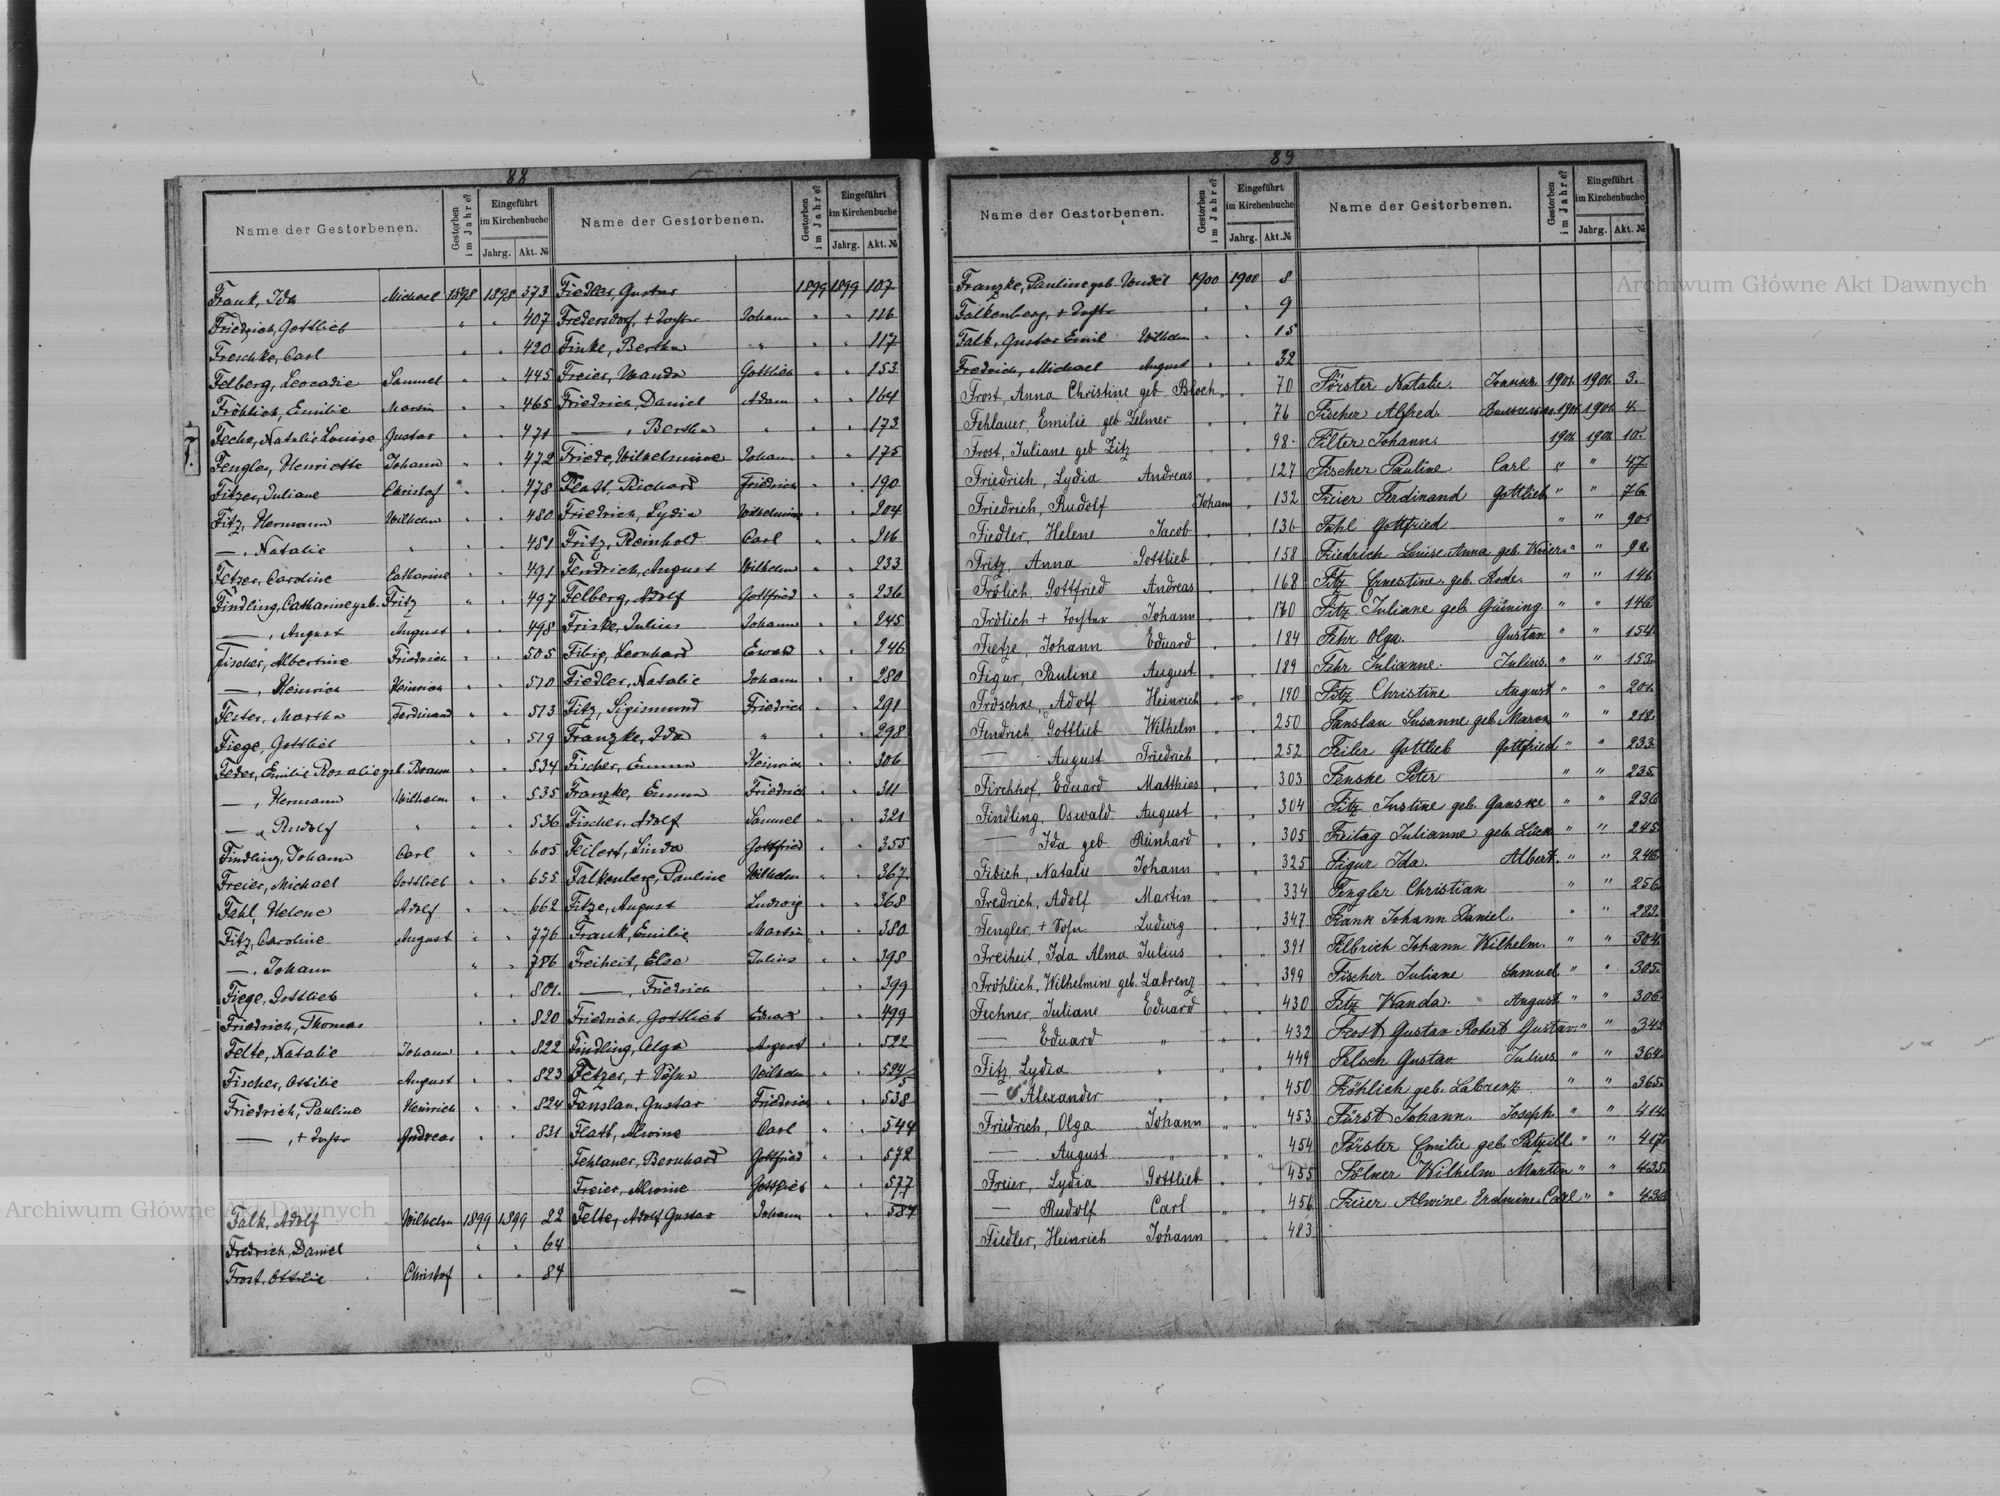 88
Name der Gestorbenen. Gestorben im Jahre? Eingeführt im Kirchenbuche Jahrg. Akt. №
Frank, Ida Michael 1898 1898 373
Friedrich, Gottlieb " " 407
Freschke, Carl " " 420
Felberg, Leocadie Samuel " " 445
Fröhlich, Emilie Martin " " 465
Fecho, Natalie Louise Gustav " " 471
Fengler, Henriette Johann " " 472
Fitzer, Juliane Christof " " 478
Fitz, Hermann Wilhelm " " 480
—, Natalie " " " 481
Fetzer, Caroline Catharine " " 491
Findling, Catharine geb. Fritz " " 497
—, August August " " 498
Fischer, Albertine Friedrich " " 505
—, Heinrich Heinrich " " 510
Fester, Martha Ferdinand " " 513
Fiege, Gottlieb " " 519
Feder, Emilie Rosalie geb. Braun " " 534
—, Hermann Wilhelm " " 535
—, Rudolf " " " 536
Findling, Johann Carl " " 605
Freier, Michael Gottlieb " " 655
Fahl, Helene Adolf " " 662
Fitz, Caroline August " " 776
—, Johann " " 786
Fiege, Gottlieb " " 801.
Friedrich, Thomas " " 820
Felte, Natalie Johann " " 822
Fischer, Ottilie August " " 823
Friedrich, Pauline Heinrich " " 824
—, + Tochter Andreas " " 831
Falk, Adolf Wilhelm 1899 1899 22
Fredrich, Daniel " " 64
Frost, Ottilie Christof " " 84
Name der Gestorbenen. Gestorben im Jahre? Eingeführt im Kirchenbuche Jahrg. Akt. №
Fiedler, Gustav 1899 1899 107
Fredersdorf, + Tochter Johann " " 116
Finke, Bertha " " " 117
Freier, Wanda Gottlieb " " 153
Friedrich, Daniel Adam " " 164
—, Bertha " " " 173
Friede, Wilhelmine Johann " " 175
Flatt, Richard Friedrich " " 190
Friedrich, Lydia Wilhelmine " " 204
Fritz, Reinhold Carl " " 216
Fendrich, August Wilhelm " " 233
Felberg, Adolf Gottfried " " 236
Friske, Julius Johann " " 245
Fibig, Leonhard Ewald " " 246
Fiedler, Natalie Johann " " 280
Fitz, Sigismund Friedrich " " 291
Franzke, Ida " " " 298
Fischer, Emma Heinrich " " 306
Franzke, Emma Friedrich " " 311
Fischer, Adolf Samuel " " 321
Feilert, Linda Gottfried " " 355
Falkenberg, Pauline Wilhelm " " 367
Fitze, August Ludwig " " 368
Frank, Emilie Martin " " 380
Freiheit, Else Julius " " 398
—, Friedrich " " 399
Friedrich, Gottlieb Eduard " " 499
Findling, Olga August " " 522
Fetzer, + Sohn Wilhelm " "
Fanslau, Gustav Friedrich " " 538
Flatt, Alwine Carl " " 544
Fehlauer, Bernhard Gottfried " " 572
Freier, Alwine Gottlieb " " 577
Felte, Adolf Gustav Johann " " 587
89
Name der Gestorbenen. Gestorben im Jahre? Eingeführt im Kirchenbuche Jahrg. Akt. №
Franzke, Pauline geb. Wudel 1900 1900 8
Falkenberg, + Tochter " " 9
Falk, Gustav Emil Wilhelm " " 15
Fredrich, Michael August " " 32
Frost, Anna Christine geb Bloch " " 70
Fehlauer, Emilie geb Zelmer " " 76
Frost, Juliane geb Zitz " " 98
Friedrich, Lydia Andreas " " 127
Friedrich, Rudolf Johann " 132
Fiedler, Helene Jacob " " 136
Fritz, Anna Gottlieb " " 158
Frölich, Gottfried Andreas " " 168
Frölich + Tochter Johann " " 170
Fietze, Johann Eduard " " 184
Figur, Pauline August " " 189
Fröschke, Adolf Heinrich " " 190
Fendrich, Gottlieb Wilhelm " " 250
— August Friedrich " " 252
Firchhof, Eduard Matthias " " 303
Findling, Oswald August " " 304
— Ida geb Reinhard " " 305
Fibich, Natalie Johann " " 325
Fredrich, Adolf Martin " " 334
Fengler, + Sohn Ludwig " " 347
Freiheit, Ida Alma Julius " " 391
Fröhlich, Wilhelmine geb. Labrenz " " 399
Fechner, Juliane Eduard " " 430
— Eduard " " " 432
Fitz, Lydia " " " 449
— Alexander " " " 450
Friedrich, Olga Johann " " 453
— August " " " 454
Freier, Lydia Gottlieb " " 455
— Rudolf Carl " " 456
Fiedler, Heinrich Johann " " 483
Name der Gestorbenen. Gestorben im Jahre? Eingeführt im Kirchenbuche Jahrg. Akt. №
Förster Natalie 1901. 1901. 3.
Fischer Alfred 1901. 1901. 4.
Filter Johann 1901 1901 10.
Fischer Pauline Carl " " 47
Freier Ferdinand Gottlieb " " 76
Fahl Gottfried " " 90.
Friedrich Louise Anna geb. " " 92.
Fitz Ernestine geb. Rode. " " 141.
Fitz Juliane geb. Grüning. " " 146
Fehr Olga. Gustav " " 154
Fehr Julianne. Julius " " 153.
Fitz Christine August " " 201.
Fanslau Susanne geb. Maron " " 218.
Feiler Gottlieb Gottfried " " 233.
Fenske Peter " " 235.
Fitz Justine geb. Ganske " " 236
Freitag Julianne geb. " " 245.
Figur Ida. Albert. " " 246
Fengler Christian " " 256
Frank Johann Daniel. " " 283.
Filbrich Johann Wilhelm. " " 304.
Fischer Juliane Samuel " " 305.
Fitz Wanda. August " " 306.
Frost Gustav Robert Gustav " "
Felsch Gustav Julius " " 364.
Fröhlich geb. Labrenz " " 365.
Fürst Johann. Joseph " " 414
Förster Emilie geb. Patzill. " " 417.
Fölner Wilhelm Martin " " 435.
Freier Alwine Erdmine Carl " " 436
Archiwum Główne Akt Dawnych
Archiwum Główne Akt Dawnych